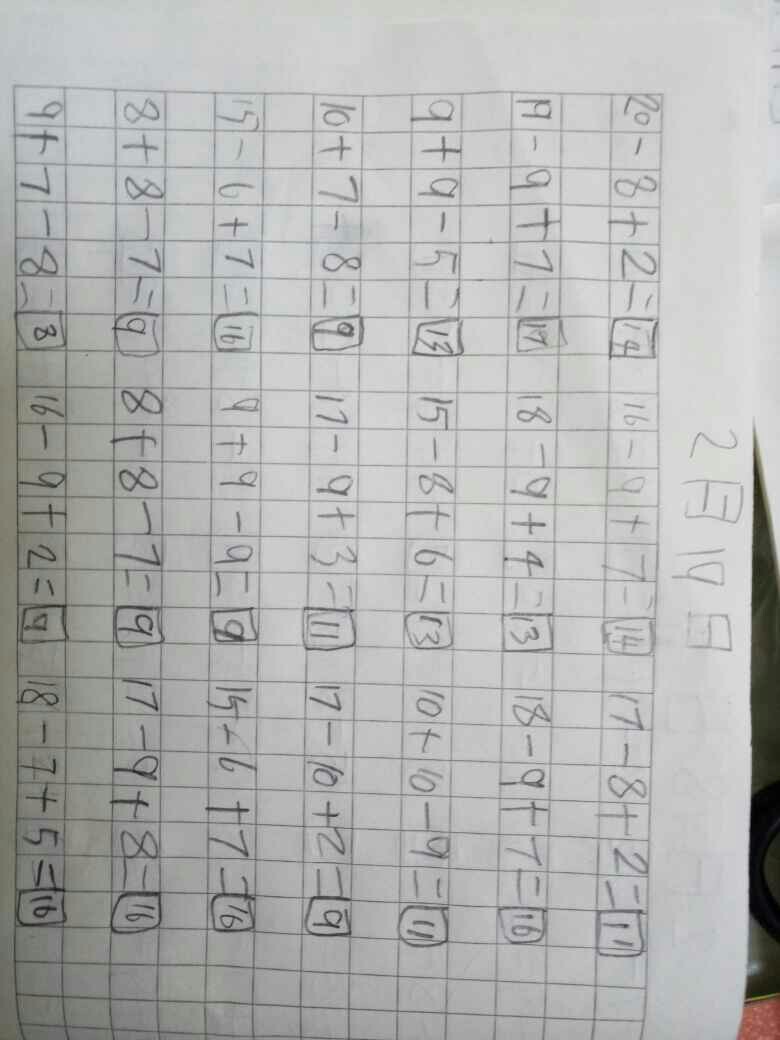 2月14日
20-8+2=14 16-9+7=14 17-8+2=11
19-9+7=17 18-9+4=13 18-9+7=16
9+9-5=13 15-8+6=13 10+10-9=11
10+7-8=9 17-9+3=11 17-10+2=9
15-6+7=16 9+9-9=9 15-6+7=16
8+8-7=9 8+8-7=9 17-9+8=16
9+7-8=8 16-9+2=9 18-7+5=16